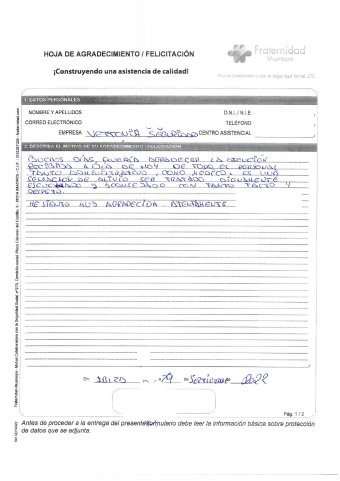 HOJA DE AGRADECIMIENTO / FELICITACIÓN
¡Construyendo una asistencia de calidad!
Fraternidad
Muprespa
Mutua Colaboradora con la Seguridad Social 275
1. DATOS PERSONALES
NOMBRE Y APELLIDOS D.N.I. / N.I.E.
CORREO ELECTRÓNICO TELÉFONO
EMPRESA SEGURIDAD CENTRO ASISTENCIAL
2. DESCRIBA EL MOTIVO DE SU AGRADECIMIENTO / FELICITACIÓN
BUENOS DÍAS, QUERÍA AGRADECER LA ATENCIÓN
RECIBIDA A DÍA DE HOY DE TODO EL PERSONAL
TANTO ADMINISTRATIVO, COMO MÉDICO. ES UNA
SENSACIÓN DE ALIVIO SER TRATADO DIGNAMENTE
ESCUCHADO Y ACONSEJADO CON TANTO TACTO Y
RESPETO.
ME SIENTO MUY AGRADECIDA ATENTAMENTE
En IBIZA a 29 Septiembre 2022
Pág. 1 / 2
Antes de proceder a la entrega del presente formulario debe leer la información básica sobre protección
de datos que se adjunta.